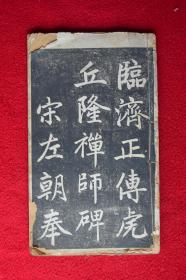 臨濟正傳虎
丘隆禪師碑
宋左朝奉